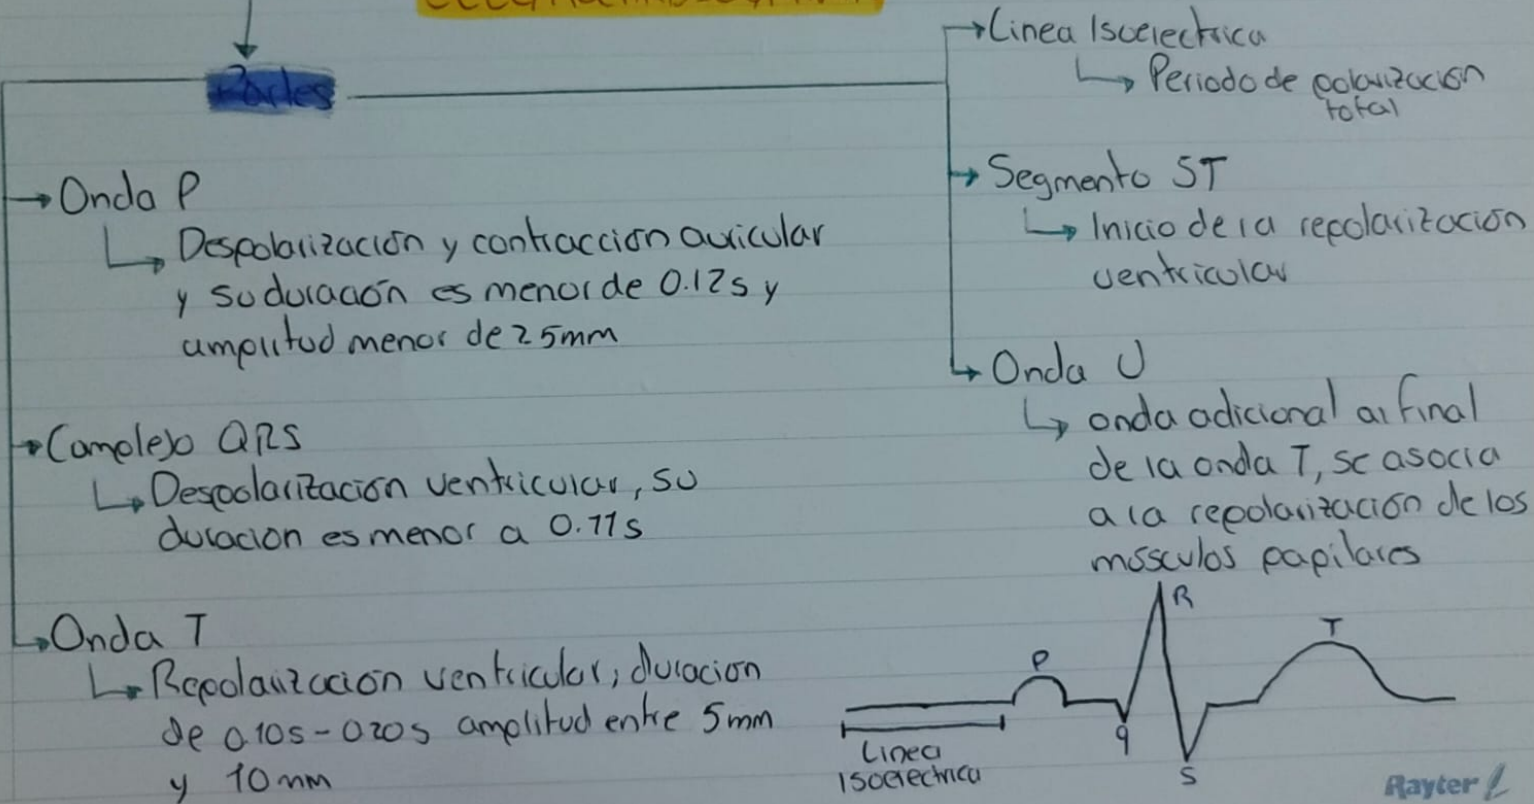 Partes
→ Onda P
Despolarización y contraccion auricular
y su duración es menor de 0.12s y
amplitud menor de 2 5mm
→ Complejo QRS
Despolarización ventricular, su
duracion es menor a 0.11s
→ Onda T
Repolarización ventricular, duracion
de 0.10s-0.20s amplitud entre 5mm
y 10mm
→ Linea Isoelectrica
Periodo de polarización
total
→ Segmento ST
Inicio de la repolarización
ventricular
→ Onda U
onda adicional al final
de la onda T, se asocia
a la repolarización de los
músculos papilares
R
T
P
q
S
Linea
Isoelectrica
Rayter